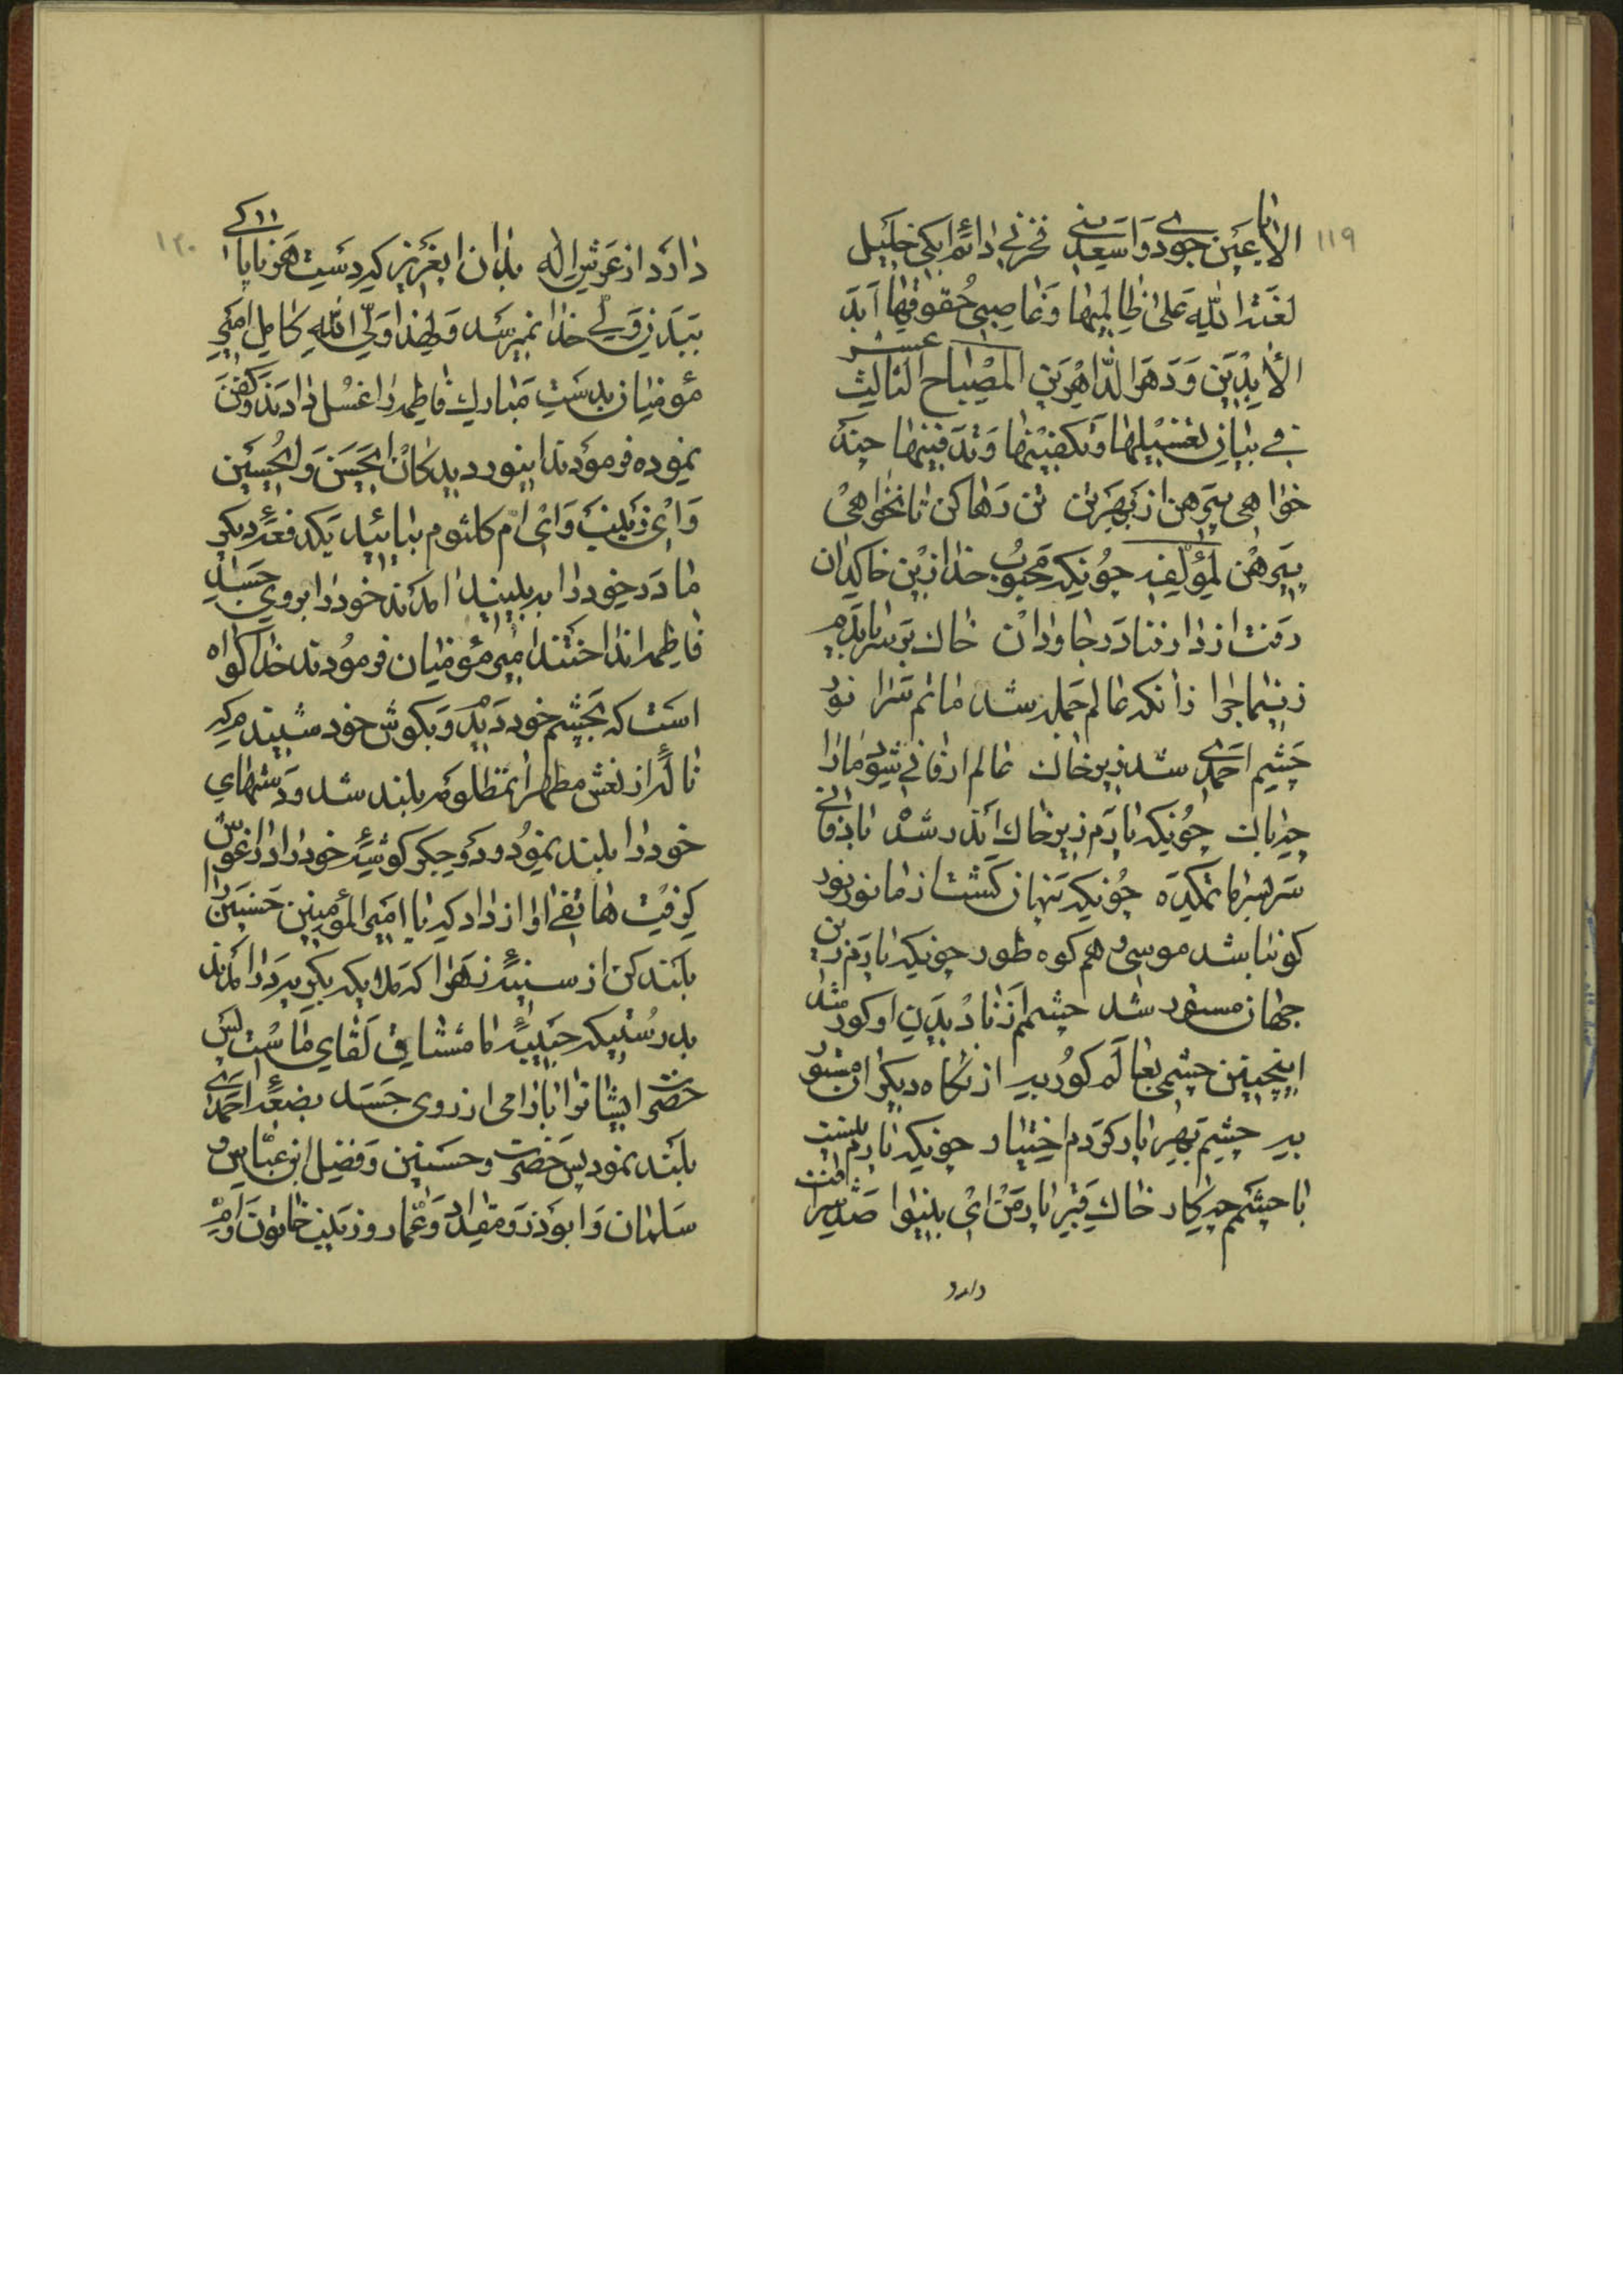 ١١٩
الا یا عین جودی واسعدینی فحزنی دائم ابکی خلیل
لعنة الله علی ظالمیها وغاصبی حقوقها ابد
الابدین ودهر الداهرین المصباح الثالث عشر
فی بیان تغسیلها وتکفینها وتدفینها چند
خواهی پیرهن از بهر تن تن رها کن تا نخواهی
پیرهن لمؤلفه چونکه محبوب خدا زین خاکدان
رفت از دار فنا در جاودان خاک بر سر یا بدم
زینماجرا زانکه عالم جمله شد ماتم سرا نور
چشم احمدی شد زیر خاک عالم ار فانی شود ما را
چه باک چونکه یارم زیر خاک اندر شد یا
سر بسر ماتمکده چونکه پنهان گشت از ما نور نور
کو نباشد موسی و هم کوه طور چونکه یارم زین
جهان مستور شد چشمم از نادیدن او کور شد
اینچنین چشمی بعالم کور به از نگاه دیگران مستور
به چشم بهر یار کردم اختیار چونکه یارم نیست
با چشمم چه کار خاک قبر یار من ای بینوا صد شرافت
دارد
١٢٠
دارد از عرش اله بدان ایعزیز که دست هر ناپاکی
ببدن ولی خدا نمیرسد ولهذا ولی الله کامل امیر
مؤمنان بدست مبارک فاطمه را غسل دادند و کفن
نموده فرمودند اینور دیدگان الحسن والحسین
وای زینب وای ام کلثوم بیائید یکدفعه دیگر
مادر خود را ببینید امدند خود را بروی جسد
فاطمه انداختند امیر مؤمنان فرمودند خدا گواه
است که بچشم خود دید و بگوش خود شنیدم که
ناله از نعش مطهر انمظلومه بلند شد و دستهای
خود را بلند نمود و دو جگر گوشه خود را در اغوش
گرفت هاتفی اواز داد که یا امیر المؤمنین حسنین را
بلند کن از سینه زهرا که ملایکه بگریه درامدند
بدرستیکه حبیبه ما مشتاق لقای ماست پس
حضرت ایشانرا بارامی از روی جسد بضعه احمدی
بلند نمود پس حضرت وحسنین وفضل ابن عباس و
سلمان وابوذر ومقداد وعمار وزینب خاتون وام